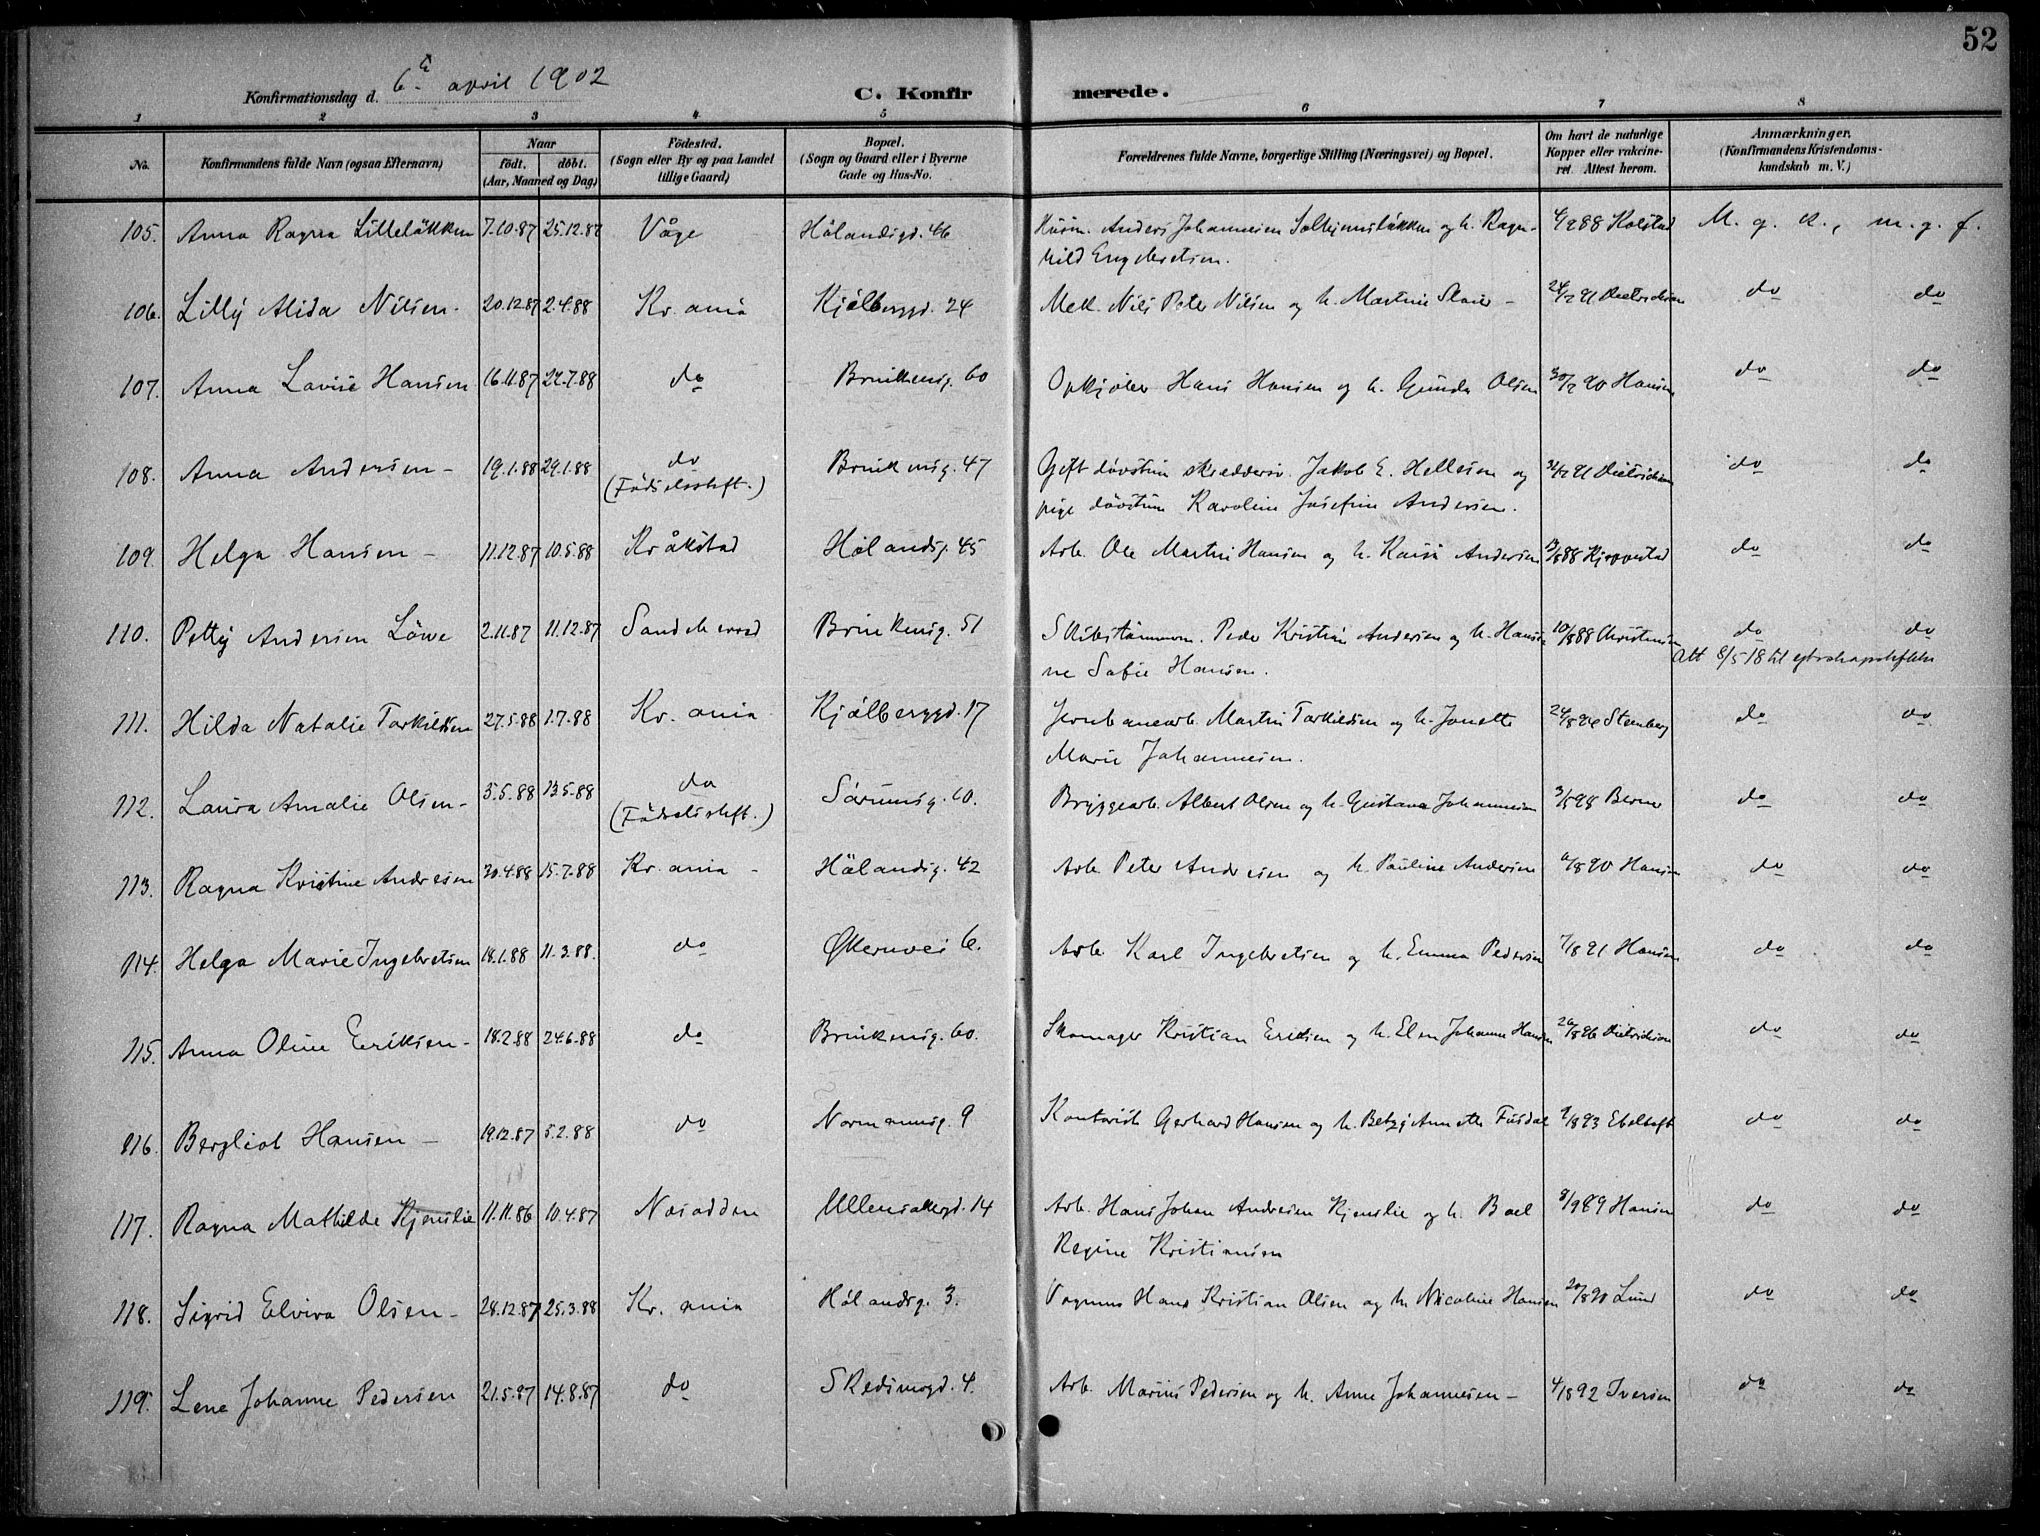 52
Konfirmationsdag d. 6te april 1902
C. Konfirmerede.
1 2 3 4 5 6 7 8
No. Konfirmandens fulde Navn (ogsaa Efternavn) Naar födt. döbt. (Aar, Maaned og Dag) Födested. (Sogn eller By og paa Landet tillige Gaard) Bopæl. (Sogn og Gaard eller i Byerne Gade og Hus-No. Forældrenes fulde Navne, borgerlige Stilling (Næringsvei) og Bopæl. Om havt de naturlige Kopper eller vakcineret. Attest herom. Anmærkninger. (Konfirmandens Kristendomskundskab m. V.)
105. Anna Ragna Lillelökken 7.10.87 25.12.87 Våge Hölandsgd. 46 Anders Johannesen og h. Ragn- 88 Kolstad M. g. k., m. g. f.
hild Engebretsen.
106. Lilly Alida Nilsen. 20.12.87 2.4.88 Kr. ania Kjölberggd. 24 Mek. Nils Peter Nilsen og h. Martine 91 Dietrichson do do
107. Anna Lovise Hansen 16.11.87 22.7.88 do Brinkensg. 60 Opkjöber Hans Hansen og h. Gunda Olsen 90 Hansen do do
108. Anna Andersen - 19.1.88 29.1.88 do Brinkensg. 47 Gift dövstum skreddersv. Jakob E. Hellesen og 91 Dietrichson do do
(Födselsstift.) pige dövstum Karoline Josefine Andersen.
109. Helga Hansen - 11.12.87 10.5.88 Kråkstad Hölandsg. 45 Arb. Ole Martin Hansen og h. Kaisa Andersen 88 do do
110. Petty Andersen Löwe 2.11.87 11.12.87 Sandeherred Brinkensg. 51 Skibstömmerm. Peder Kristian Andersen og h. Hansi- 10/8 88 Christensen do do
ne Sofie Hansen. Att 8/5 18 til
111. Hilda Natalie Torkildsen 27.5.88 1.7.88 Kr. ania Kjölberggd. 17 Jernbanearb. Martin Torkildsen og h. Jonette Steenberg do do
Marie Johannesen.
112. Laura Amalie Olsen - 5.5.88 13.5.88 do Sörumsg. 10. Bryggearb. Albert Olsen og h. Gustava Johannesen 98 Berner do do
(Födselsstift.)
113. Ragna Kristine Andresen 30.4.88 15.7.88 Kr. ania - Hölandsg. 42 Arb. Peter Andresen og h. Pauline Andersen 90 Hansen do do
114. Helga Marie Ingebretsen 18.1.88 11.3.88. do Økernvei 6. Arb. Karl Ingebretsen og h. Emma Pedersen 91 Hansen do do
115. Anna Oline Eriksen - 18.2.88 24.6.88 do Brinkensg. 60. Skomager Kristian Eriksen og h. Elen Johanne Hansen Dietrichson do do
116. Bergliot Hansen - 19.12.87 5.2.88 do Normannsg. 9 Kontorist Gerhard Hansen og h. Betzy Annette Fusdal 93 Ebeltoft do do
117. Ragna Mathilde Kjenslie 11.11.86 10.4.87 Nesodden Ullensakergd. 14 Arb. Hans Johan Andresen Kjenslie og h. Boel 89 Hansen do do
Regine Kristiansen
118. Sigrid Elvira Olsen - 28.12.87 25.3.88 Kr. ania Hölandsg. 3. Vognm Hans Kristian Olsen og h. Nicoline Hansen 20/8 90 Lund do do
119. Lene Johanne Pedersen 21.5.87 14.8.87 do Skedsmogd. 4. Arb. Marius Pedersen og h. Anne Johannesen - 4/8 92 Iversen do do